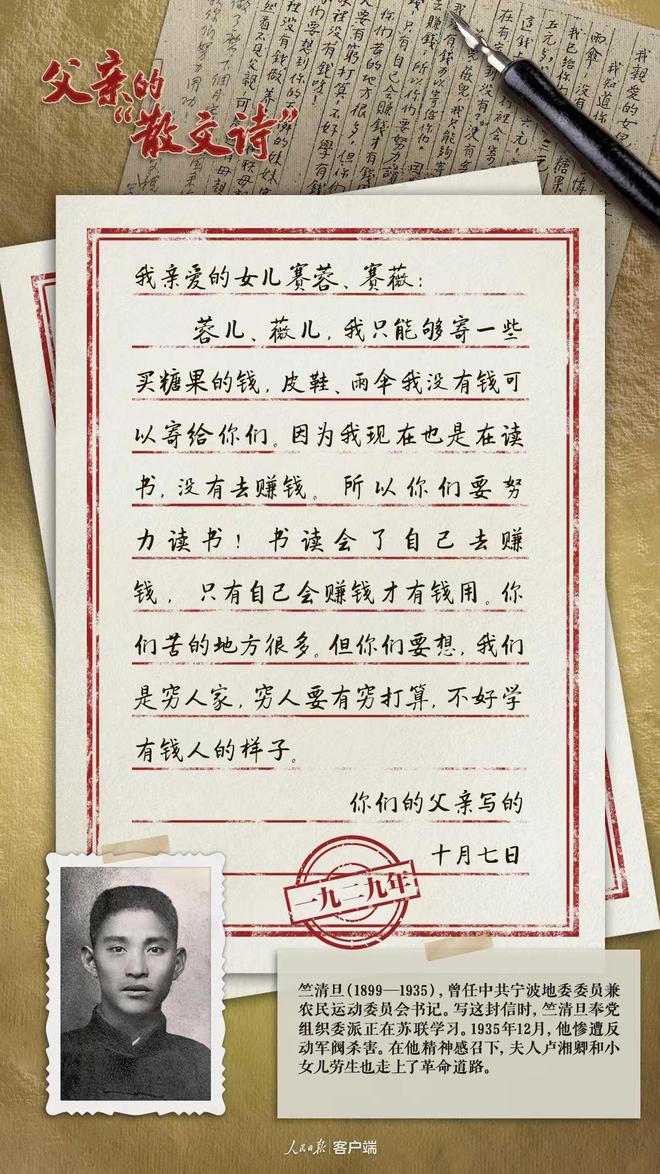 父亲的
“散文诗”
我亲爱的女儿赛蓉、赛薇：
蓉儿、薇儿，我只能够寄一些
买糖果的钱，皮鞋、雨伞我没有钱可
以寄给你们。因为我现在也是在读
书，没有去赚钱。所以你们要努
力读书！书读会了自己去赚
钱，只有自己会赚钱才有钱用。你
们苦的地方很多。但你们要想，我们
是穷人家，穷人要有穷打算，不好学
有钱人的样子。
你们的父亲写的
十月七日
一九二九年
竺清旦（1899—1935），曾任中共宁波地委委员兼
农民运动委员会书记。写这封信时，竺清旦奉党
组织委派正在苏联学习。1935年12月，他惨遭反
动军阀杀害。在他精神感召下，夫人卢湘卿和小
女儿劳生也走上了革命道路。
人民日报 客户端